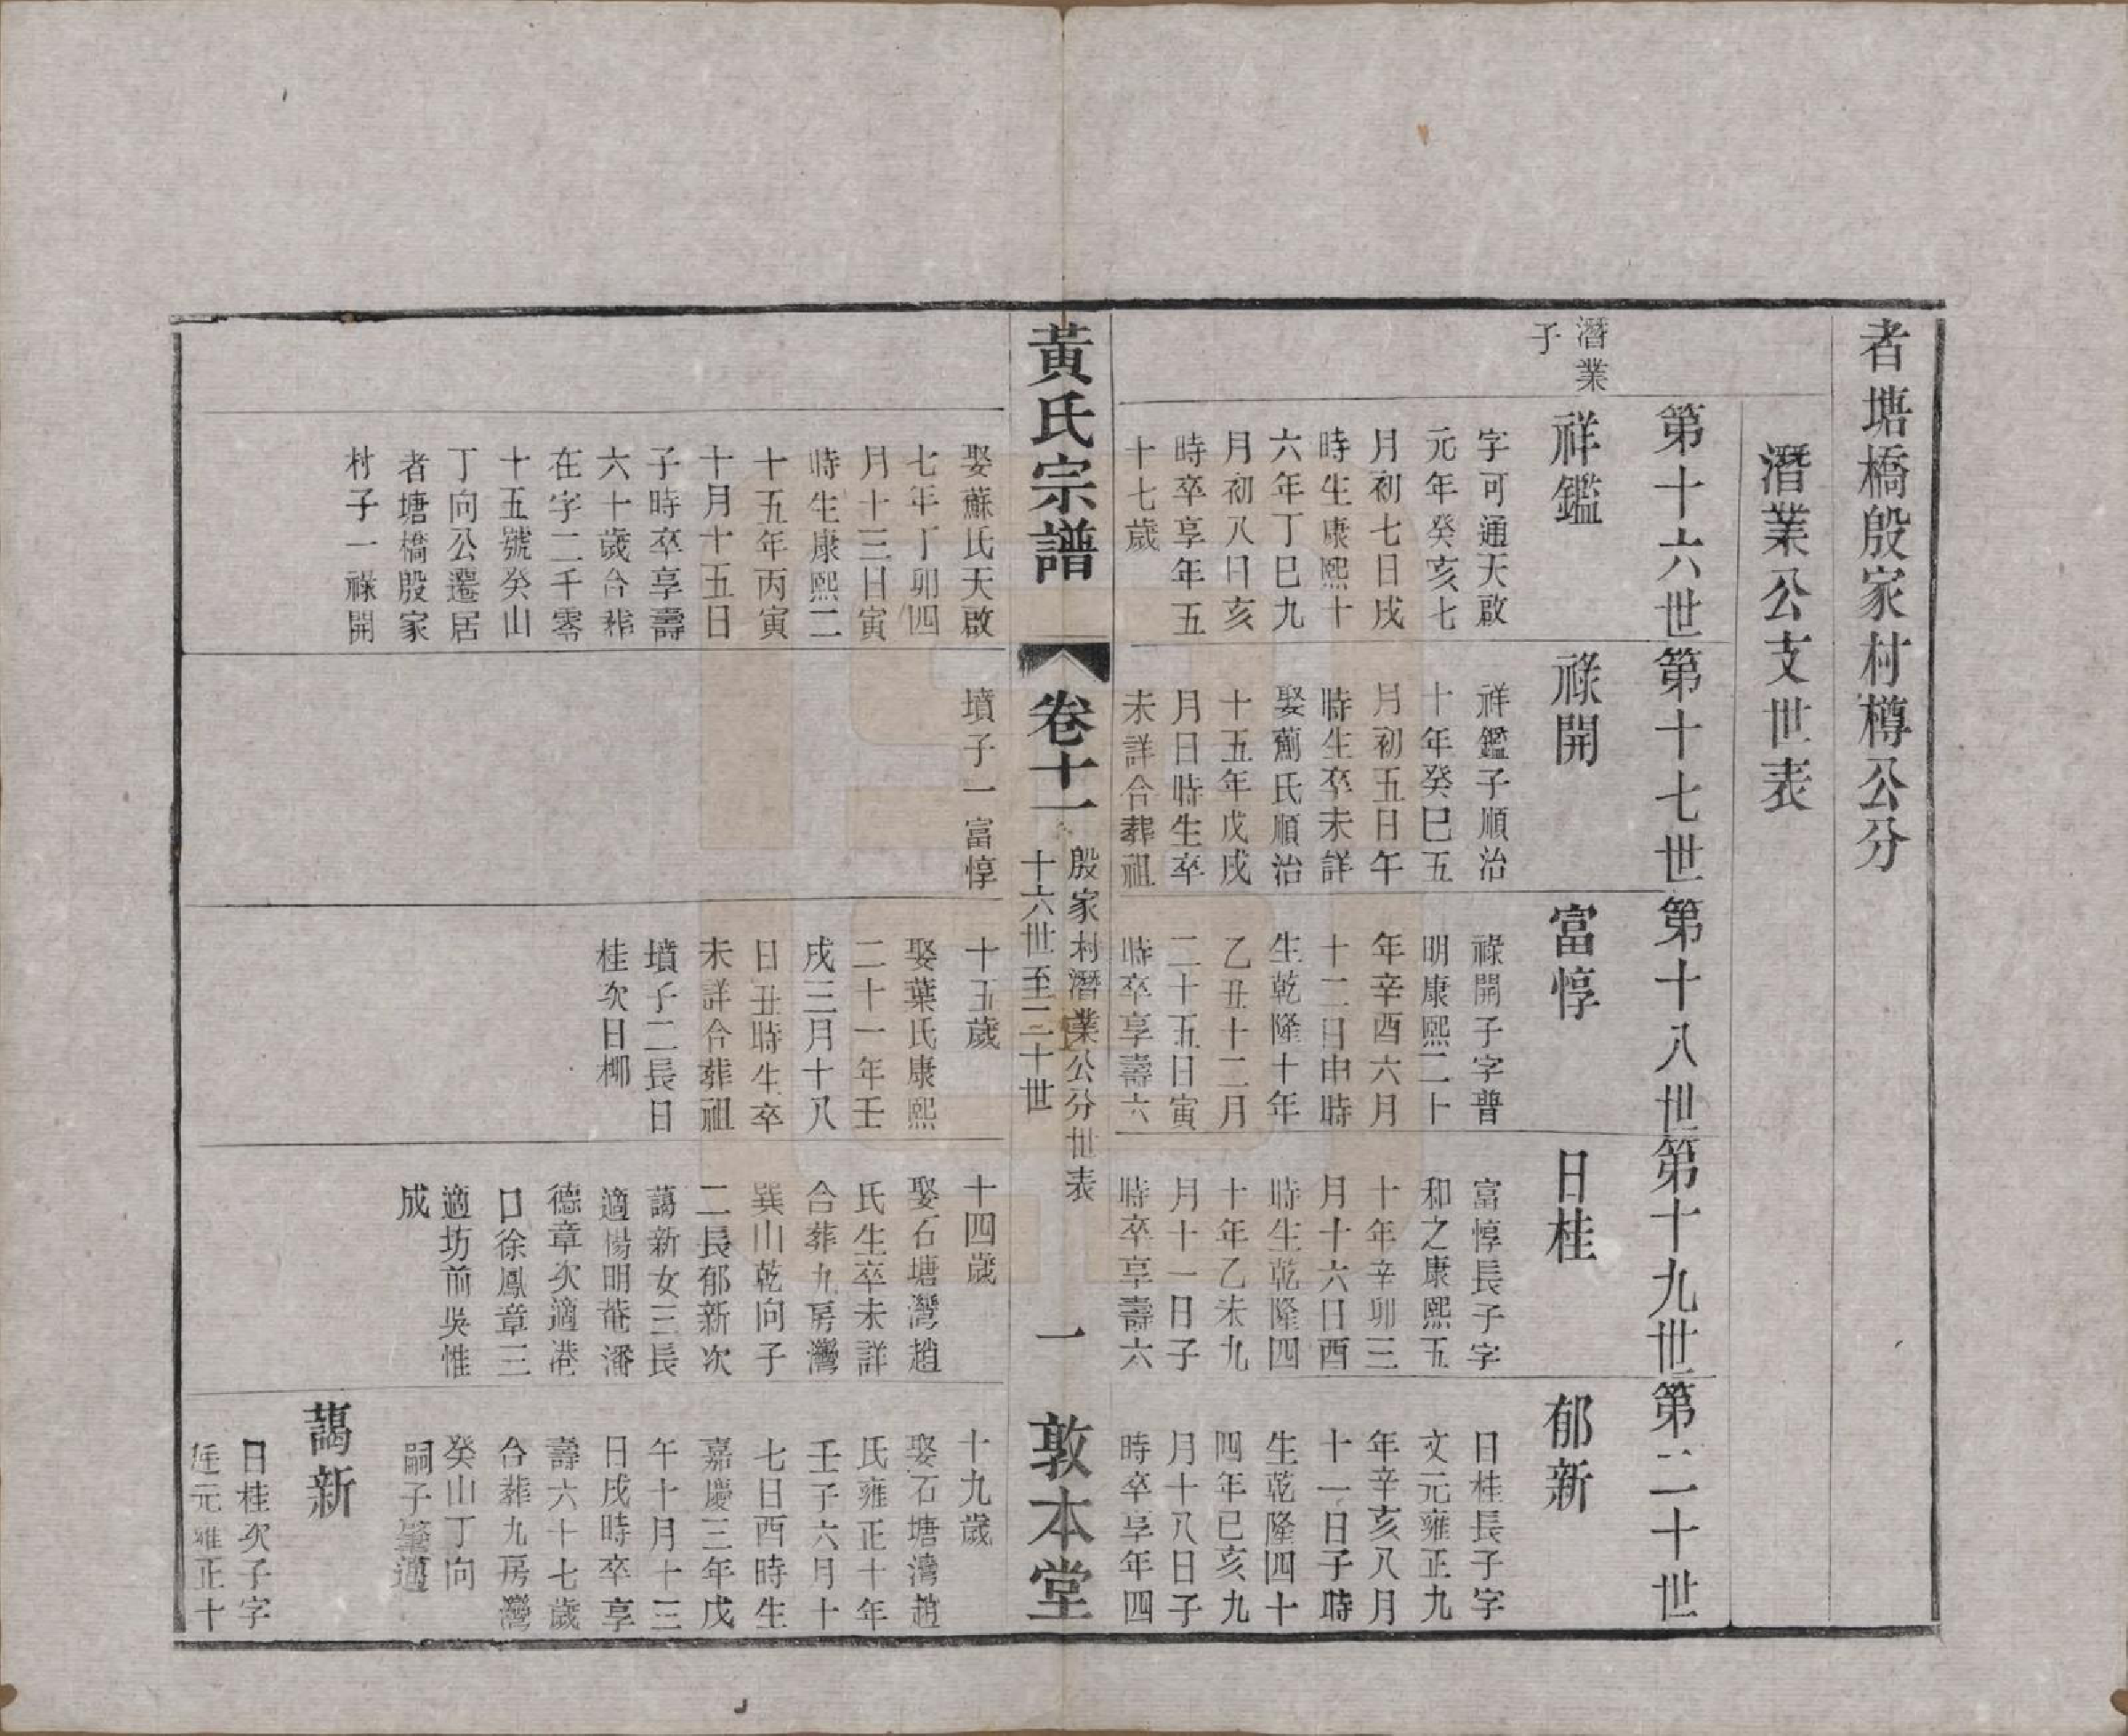 者塘橋殷家村樽公分
潛業公支世表
第十六世
第十七世
第十八世
第十九世
第二十世
潛業
子
祥鑑
字可通天啟
元年癸亥七
月初七日戌
時生康熙十
六年丁巳九
月初八日亥
時卒享年五
十七歲
娶蘇氏天啟
七年丁卯四
月十三日寅
時生康熙二
十五年丙寅
十月十五日
子時卒享壽
六十歲合葬
在字二千零
十五號癸山
丁向公遷居
者塘橋殷家
村子一祿開
祿開
祥鑑子順治
十年癸巳五
月初五日午
時生卒未詳
娶薊氏順治
十五年戊戌
月日時生卒
未詳合葬祖
墳子一富惇
富惇
祿開子字普
明康熙二十
年辛酉六月
十二日申時
生乾隆十年
乙丑十二月
二十五日寅
時卒享壽六
十五歲
娶葉氏康熙
二十一年壬
戌三月十八
日丑時生卒
未詳合葬祖
墳子二長日
桂次日柳
日桂
富惇長子字
和之康熙五
十年辛卯三
月十六日酉
時生乾隆四
十年乙未九
月十一日子
時卒享壽六
十四歲
娶石塘灣趙
氏生卒未詳
合葬九房灣
巽山乾向子
二長郁新次
藹新女三長
適楊明菴潘
德章次適港
口徐鳳章三
適坊前吳惟
成
郁新
日桂長子字
文元雍正九
年辛亥八月
十一日子時
生乾隆四十
四年己亥九
月十八日子
時卒享年四
十九歲
娶石塘灣趙
氏雍正十年
壬子六月十
七日酉時生
嘉慶三年戊
午十月十三
日戌時卒享
壽六十七歲
合葬九房灣
癸山丁向
嗣子肇邁
藹新
日桂次子字
廷元雍正十
黃氏宗譜
卷十一
殷家村潛業公分世表
十六世至二十世
一
敦本堂